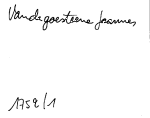 Vandegoesteene Joannes
1759/1